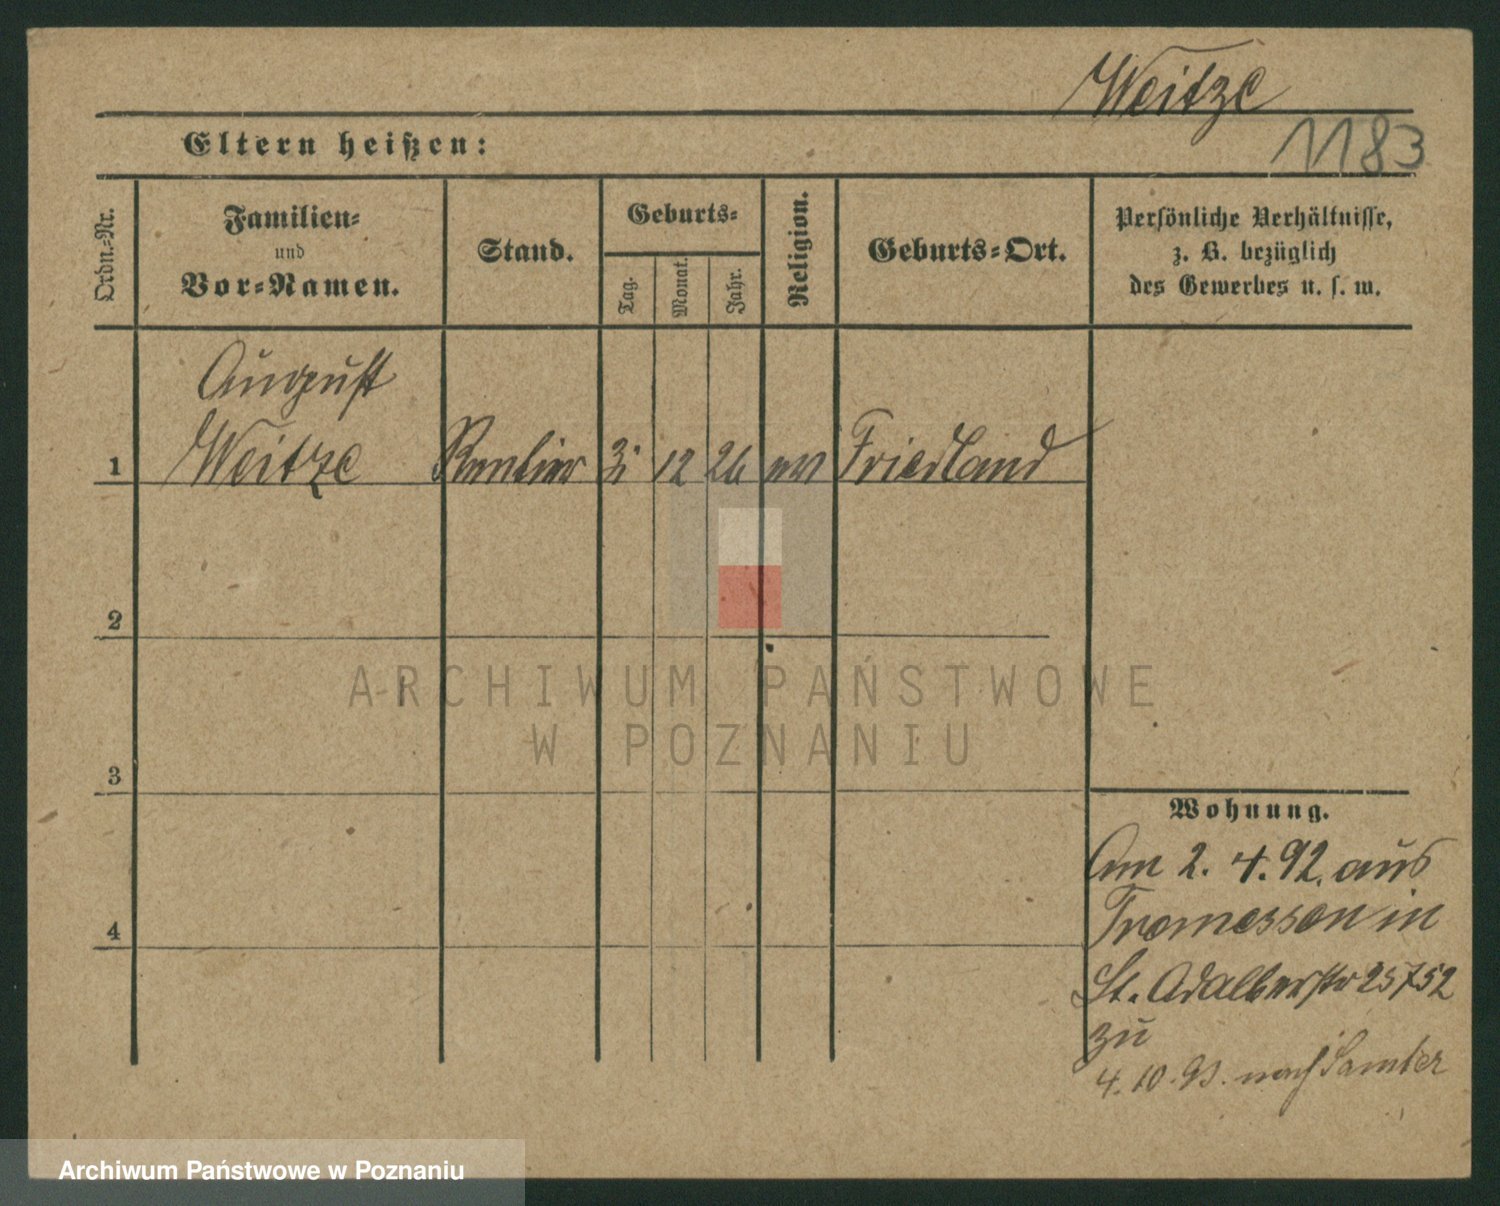 Weitze
1183
Eltern heißen:
Ordn.-Nr.
Familien-
und
Vor-Namen.
Stand.
Geburts-
Tag.
Monat.
Jahr.
Religion.
Geburts-Ort.
Persönliche Verhältnisse,
z. B. bezüglich
des Gewerbes u. s. w.
August
1 Weitze Rentier 3 12 26 ev Friedland
2
ARCHIWUM PAŃSTWOWE
W POZNANIU
3
Wohnung.
Am 2. 4. 92. aus
Tremessen in
St. Adalbertstr
4
zu
4. 10. 93. nach Samter
Archiwum Państwowe w Poznaniu